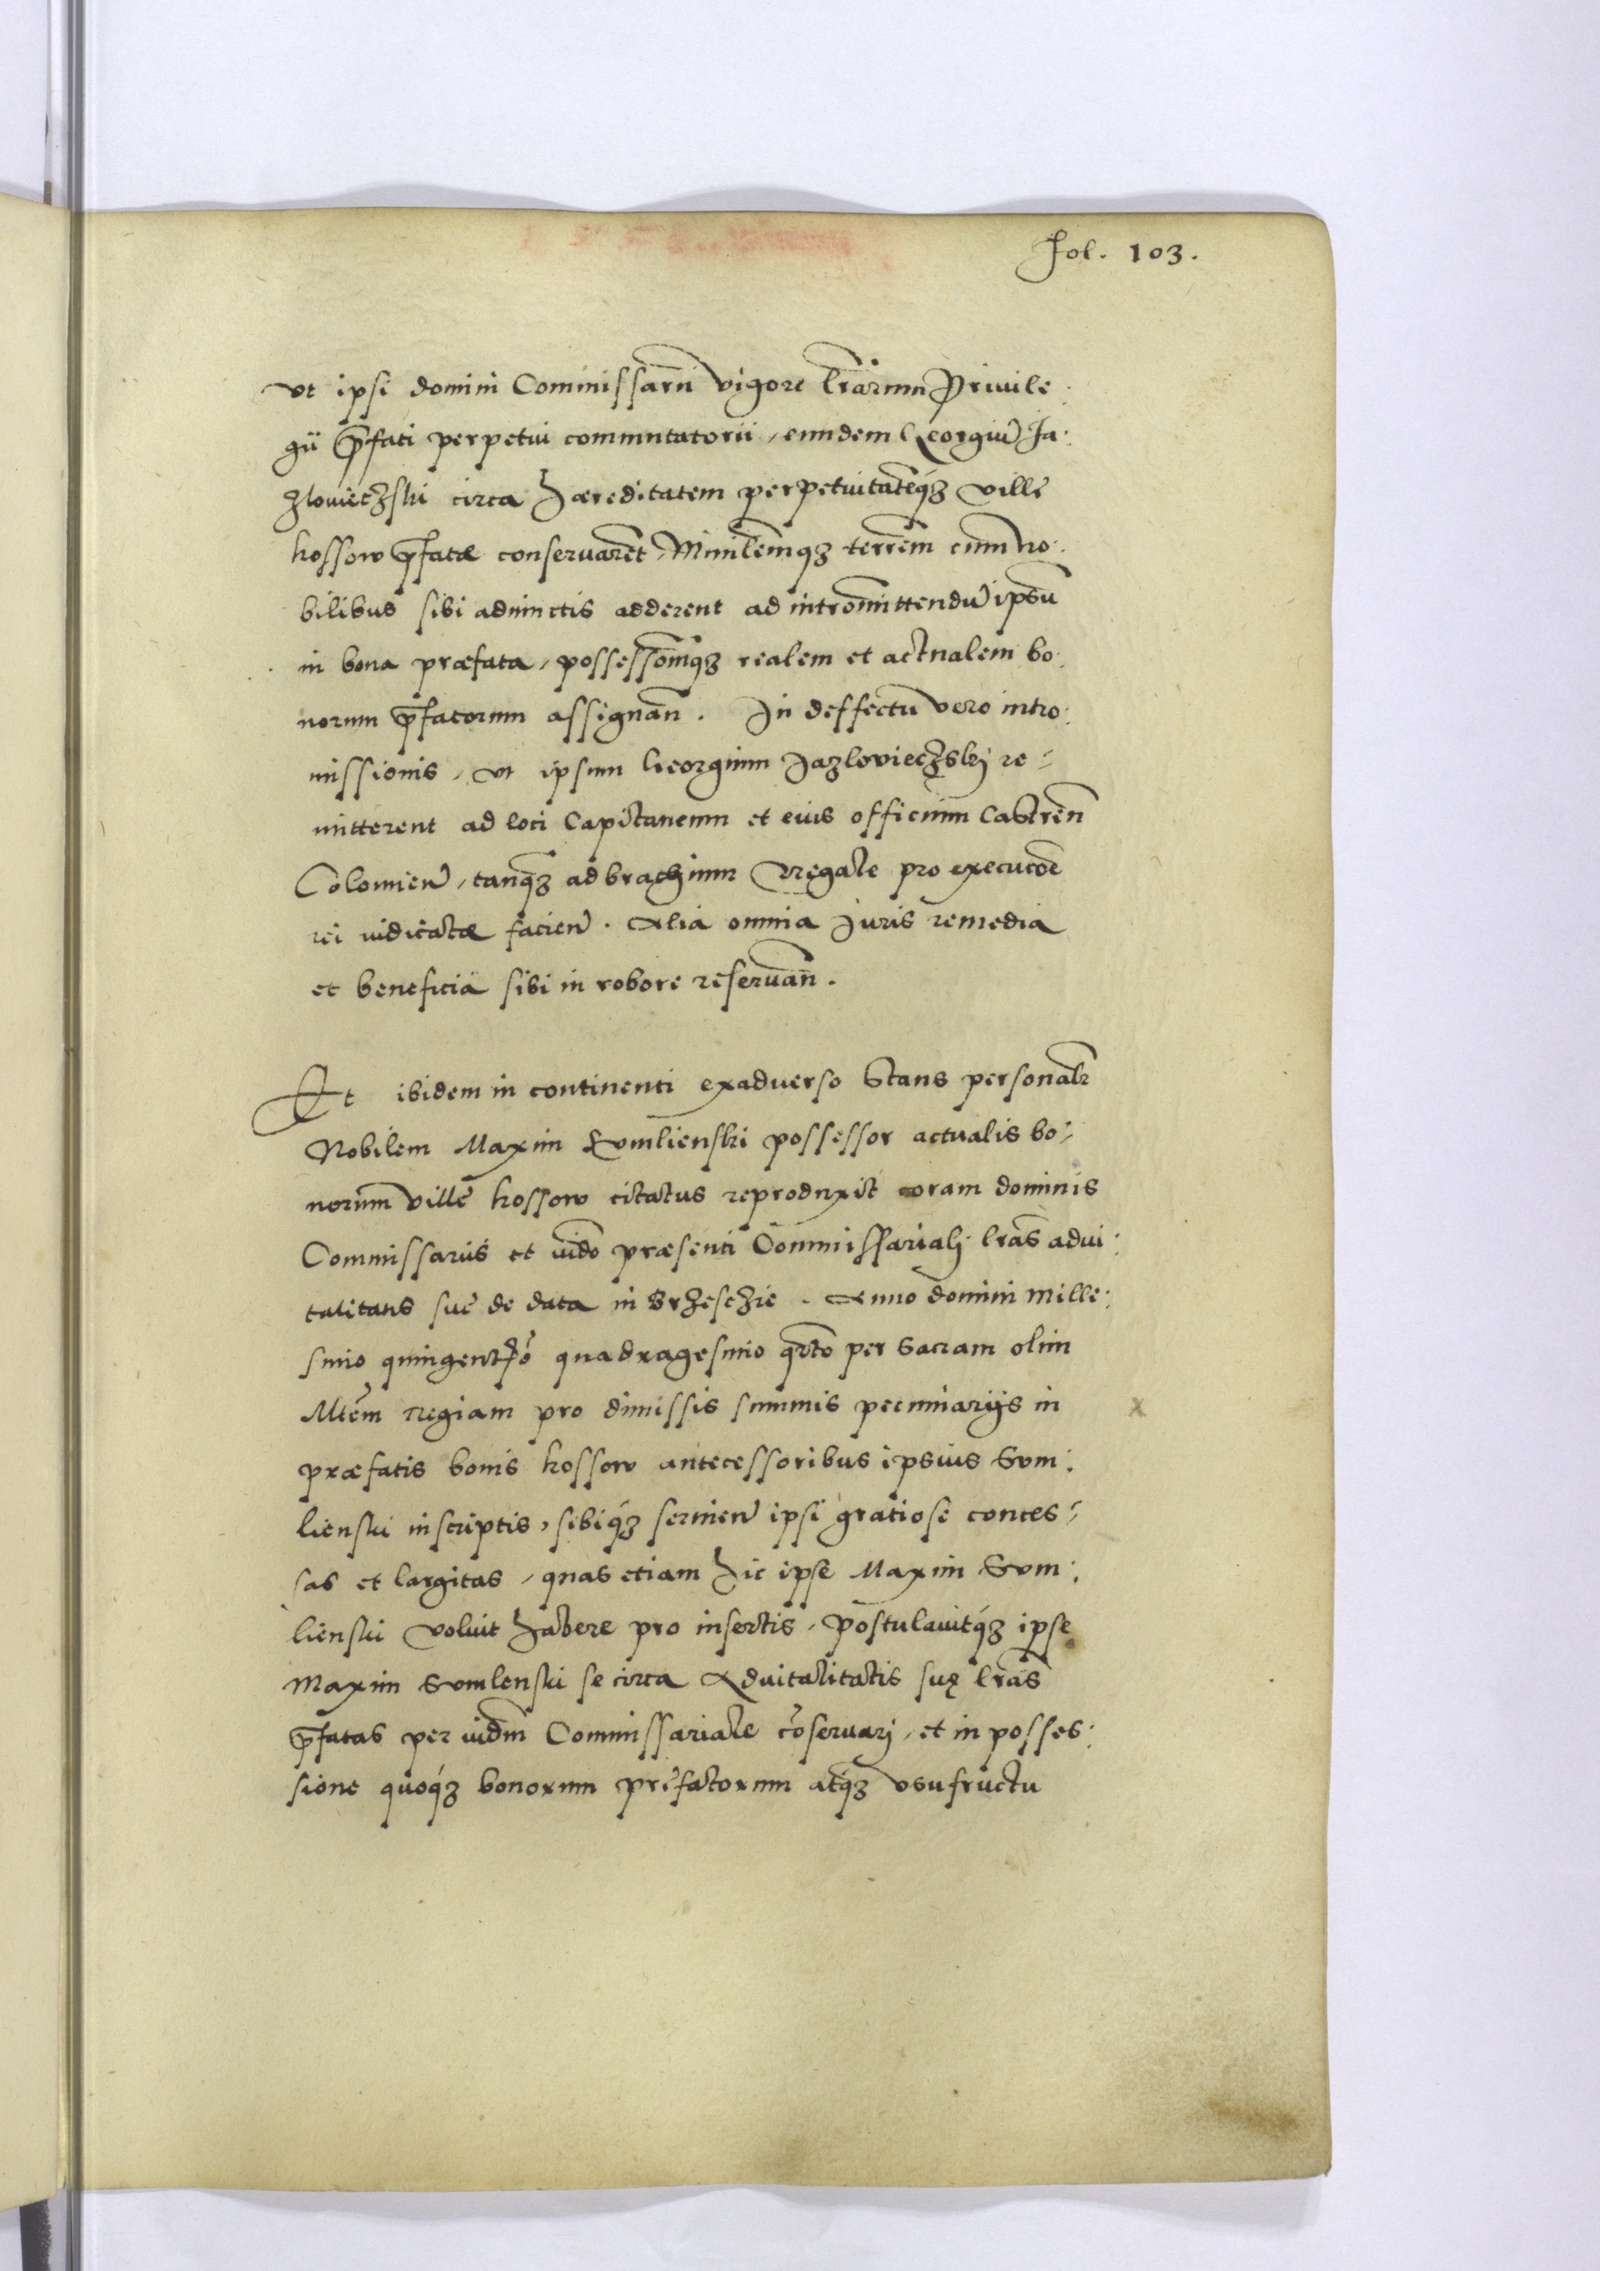 Fol. 103.
vt ipsi domini Commissarii vigore lrārum Priuile:
gii p̄fati perpetui commutatorii, eundem Georgiū Ja:
zlovieczski circa haereditatem perpetuitatēq́z villę
kossow p̄fatae conseruarēt, Minilēmq́z terrēm cum no:
bilibus sibi adiunctis adderent ad intromittendū ipsū
in bona praefata, possessōmq́z realem et actualem bo:
norum p̄fatorum assignān. In deffectu vero intro:
missionis, vt ipsum Georgium Jazlovieczskj re:
mitterent ad loci Capitaneum et eius officium Castrēn
Colomień, tanq́z ad brachium Regale pro executōe
rei iudicatae facień. Alia omnia Juris remedia
et beneficia sibi in robore reseruān.
Et ibidem in continenti exaduerso Stans personalr̄
Nobilem Maxim Somlienski possessor actualis bo:
norum villę kossow citatus reproduxit coram dominis
Commissariis et iudō praesenti Commissarialj lrās adui:
talitatis suę de data in Brzesczie. Anno domini Mille:
simo quingentēō quadragesimo qrto per Sacram olim
Mtēm Regiam pro dimissis summis pecuniarijs in
praefatis bonis kossow antecessoribus ipsius Som:
lienski inscriptis, sibiq́z seruień ipsi gratiose conces:
sas et largitas, quas etiam hic ipse Maxim Som:
lienski voluit habere pro insertis, Postulauitq́z ipse
Maxim Somlenski se circa Aduitalitatis suę lrās
p̄fatas per iudm̄ Commissariale cōseruarj, et in posses:
sione quoq́z bonorum pręfatorum atq́z vsufructu
x